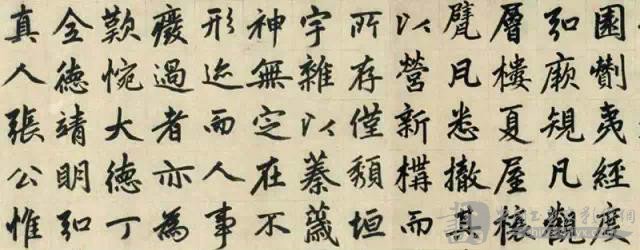 園剗夷經度
弘厥規凡觀
層樓夏屋榱
甓瓦悉撤其
以營新構而
所存僅頹垣
宇雜以蓁薉
神無定在不
形迹而人事
廢過者亦為
歎惋大德丁
全德靖明弘
真人張公惟